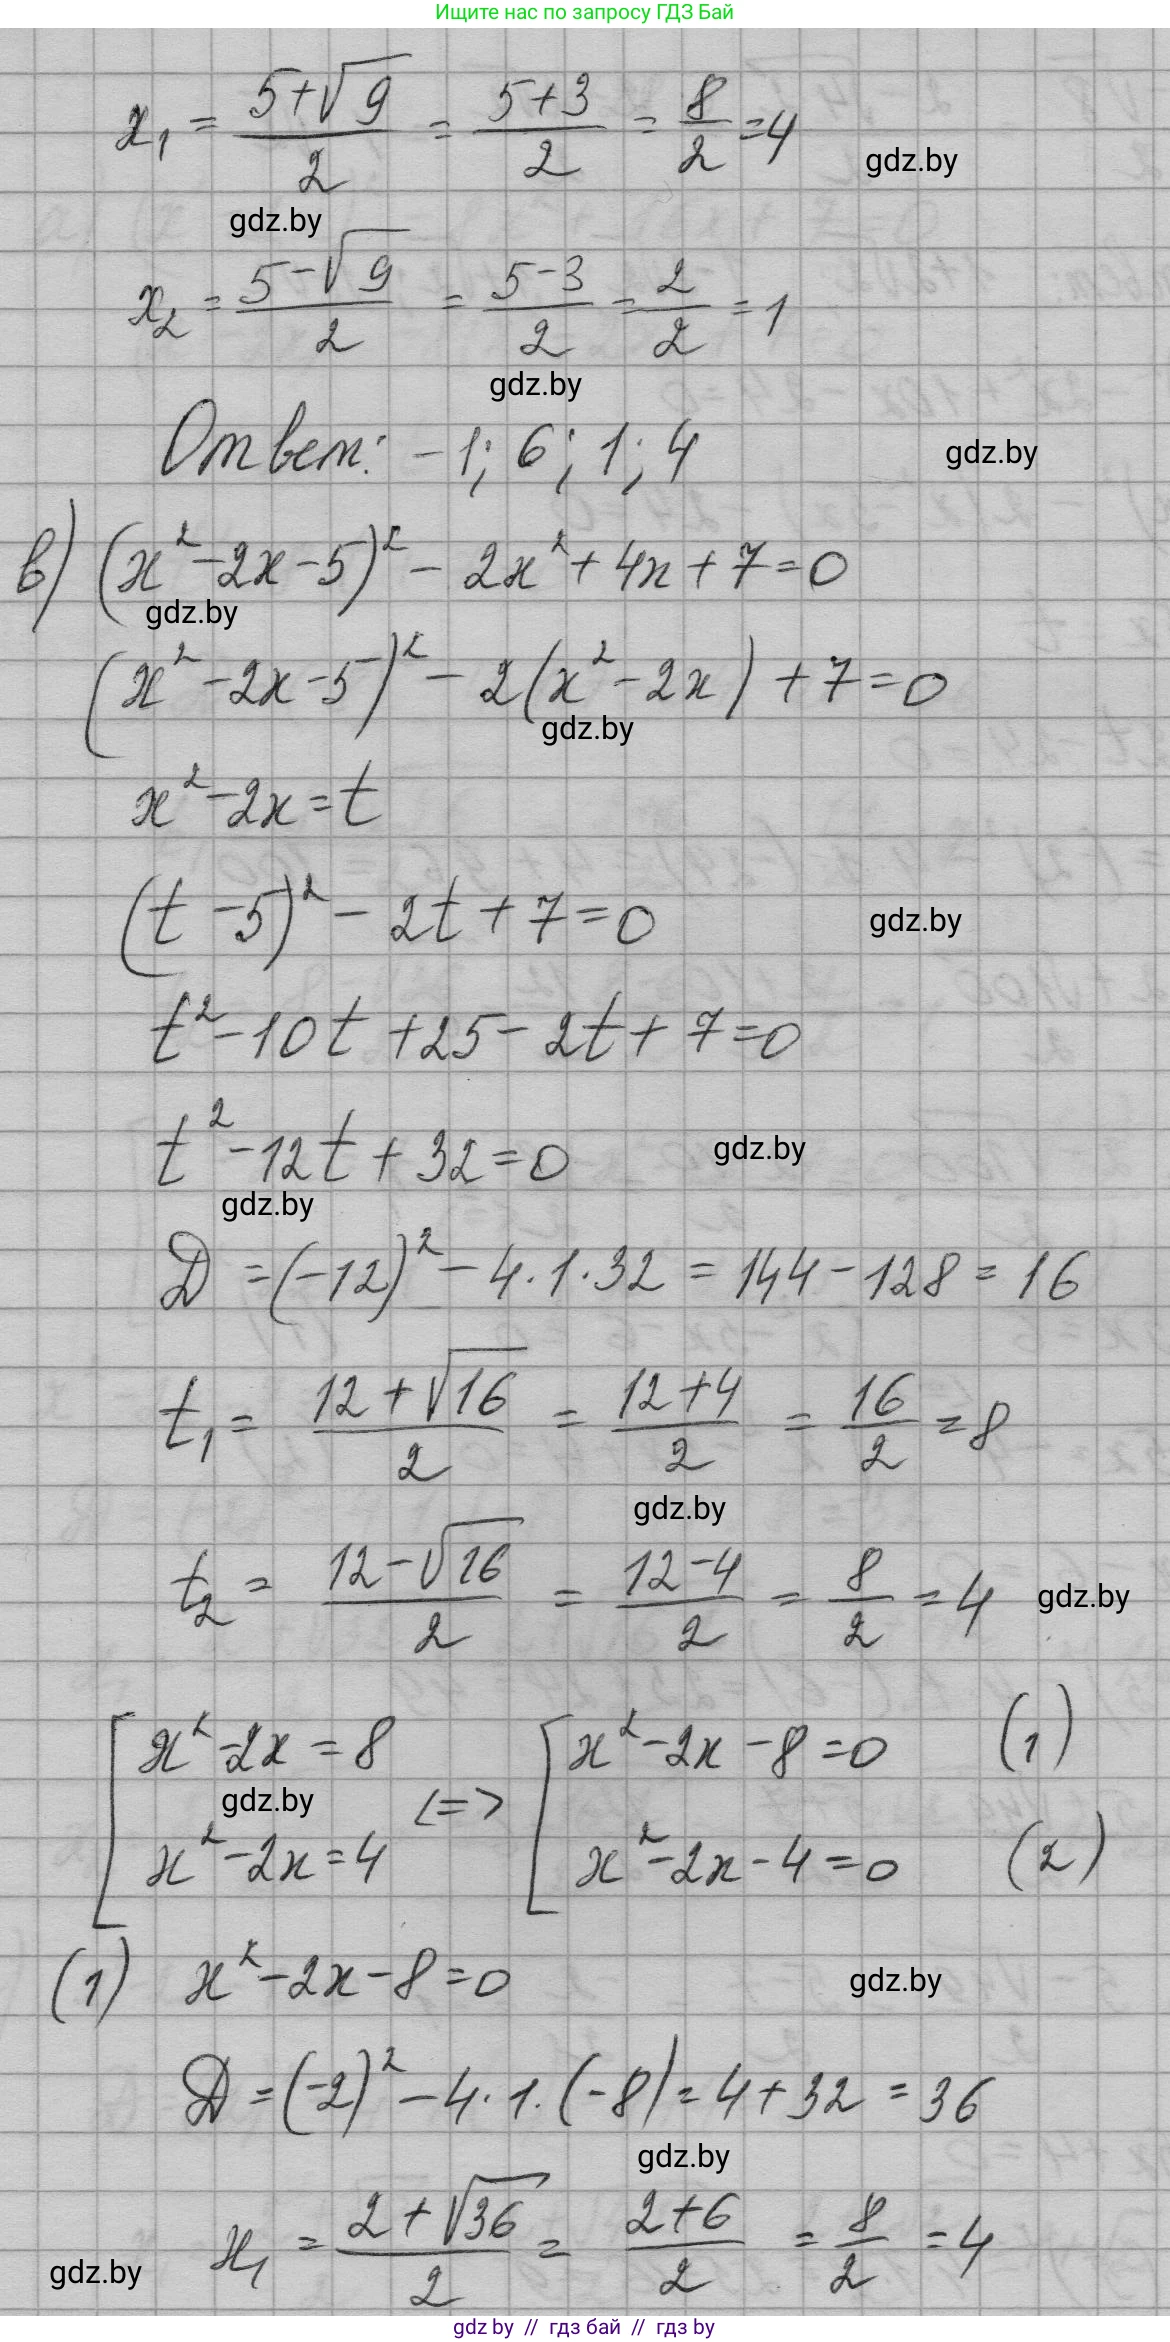 Ищите нас по запросу ГДЗ Бай
x₁ = (5+√9)/2 = (5+3)/2 = 8/2 = 4
gdz.by
gdz.by
x₂ = (5-√9)/2 = (5-3)/2 = 2/2 = 1
gdz.by
Ответ: -1; 6; 1; 4
gdz.by
в) (x²-2x-5)² - 2x² + 4x + 7 = 0
gdz.by
(x²-2x-5)² - 2(x²-2x) + 7 = 0
gdz.by
x²-2x = t
(t-5)² - 2t + 7 = 0
gdz.by
t² - 10t + 25 - 2t + 7 = 0
t² - 12t + 32 = 0
gdz.by
gdz.by
D = (-12)² - 4·1·32 = 144 - 128 = 16
t₁ = (12+√16)/2 = (12+4)/2 = 16/2 = 8
gdz.by
t₂ = (12-√16)/2 = (12-4)/2 = 8/2 = 4
gdz.by
[ x²-2x = 8 <=> [ x²-2x-8=0 (1)
gdz.by
x²-2x=4 x²-2x-4=0 (2)
(1) x²-2x-8=0
gdz.by
D = (-2)² - 4·1·(-8) = 4+32 = 36
gdz.by
x₁ = (2+√36)/2 = (2+6)/2 = 8/2 = 4
gdz.by
gdz by // гдз бай // гдз by